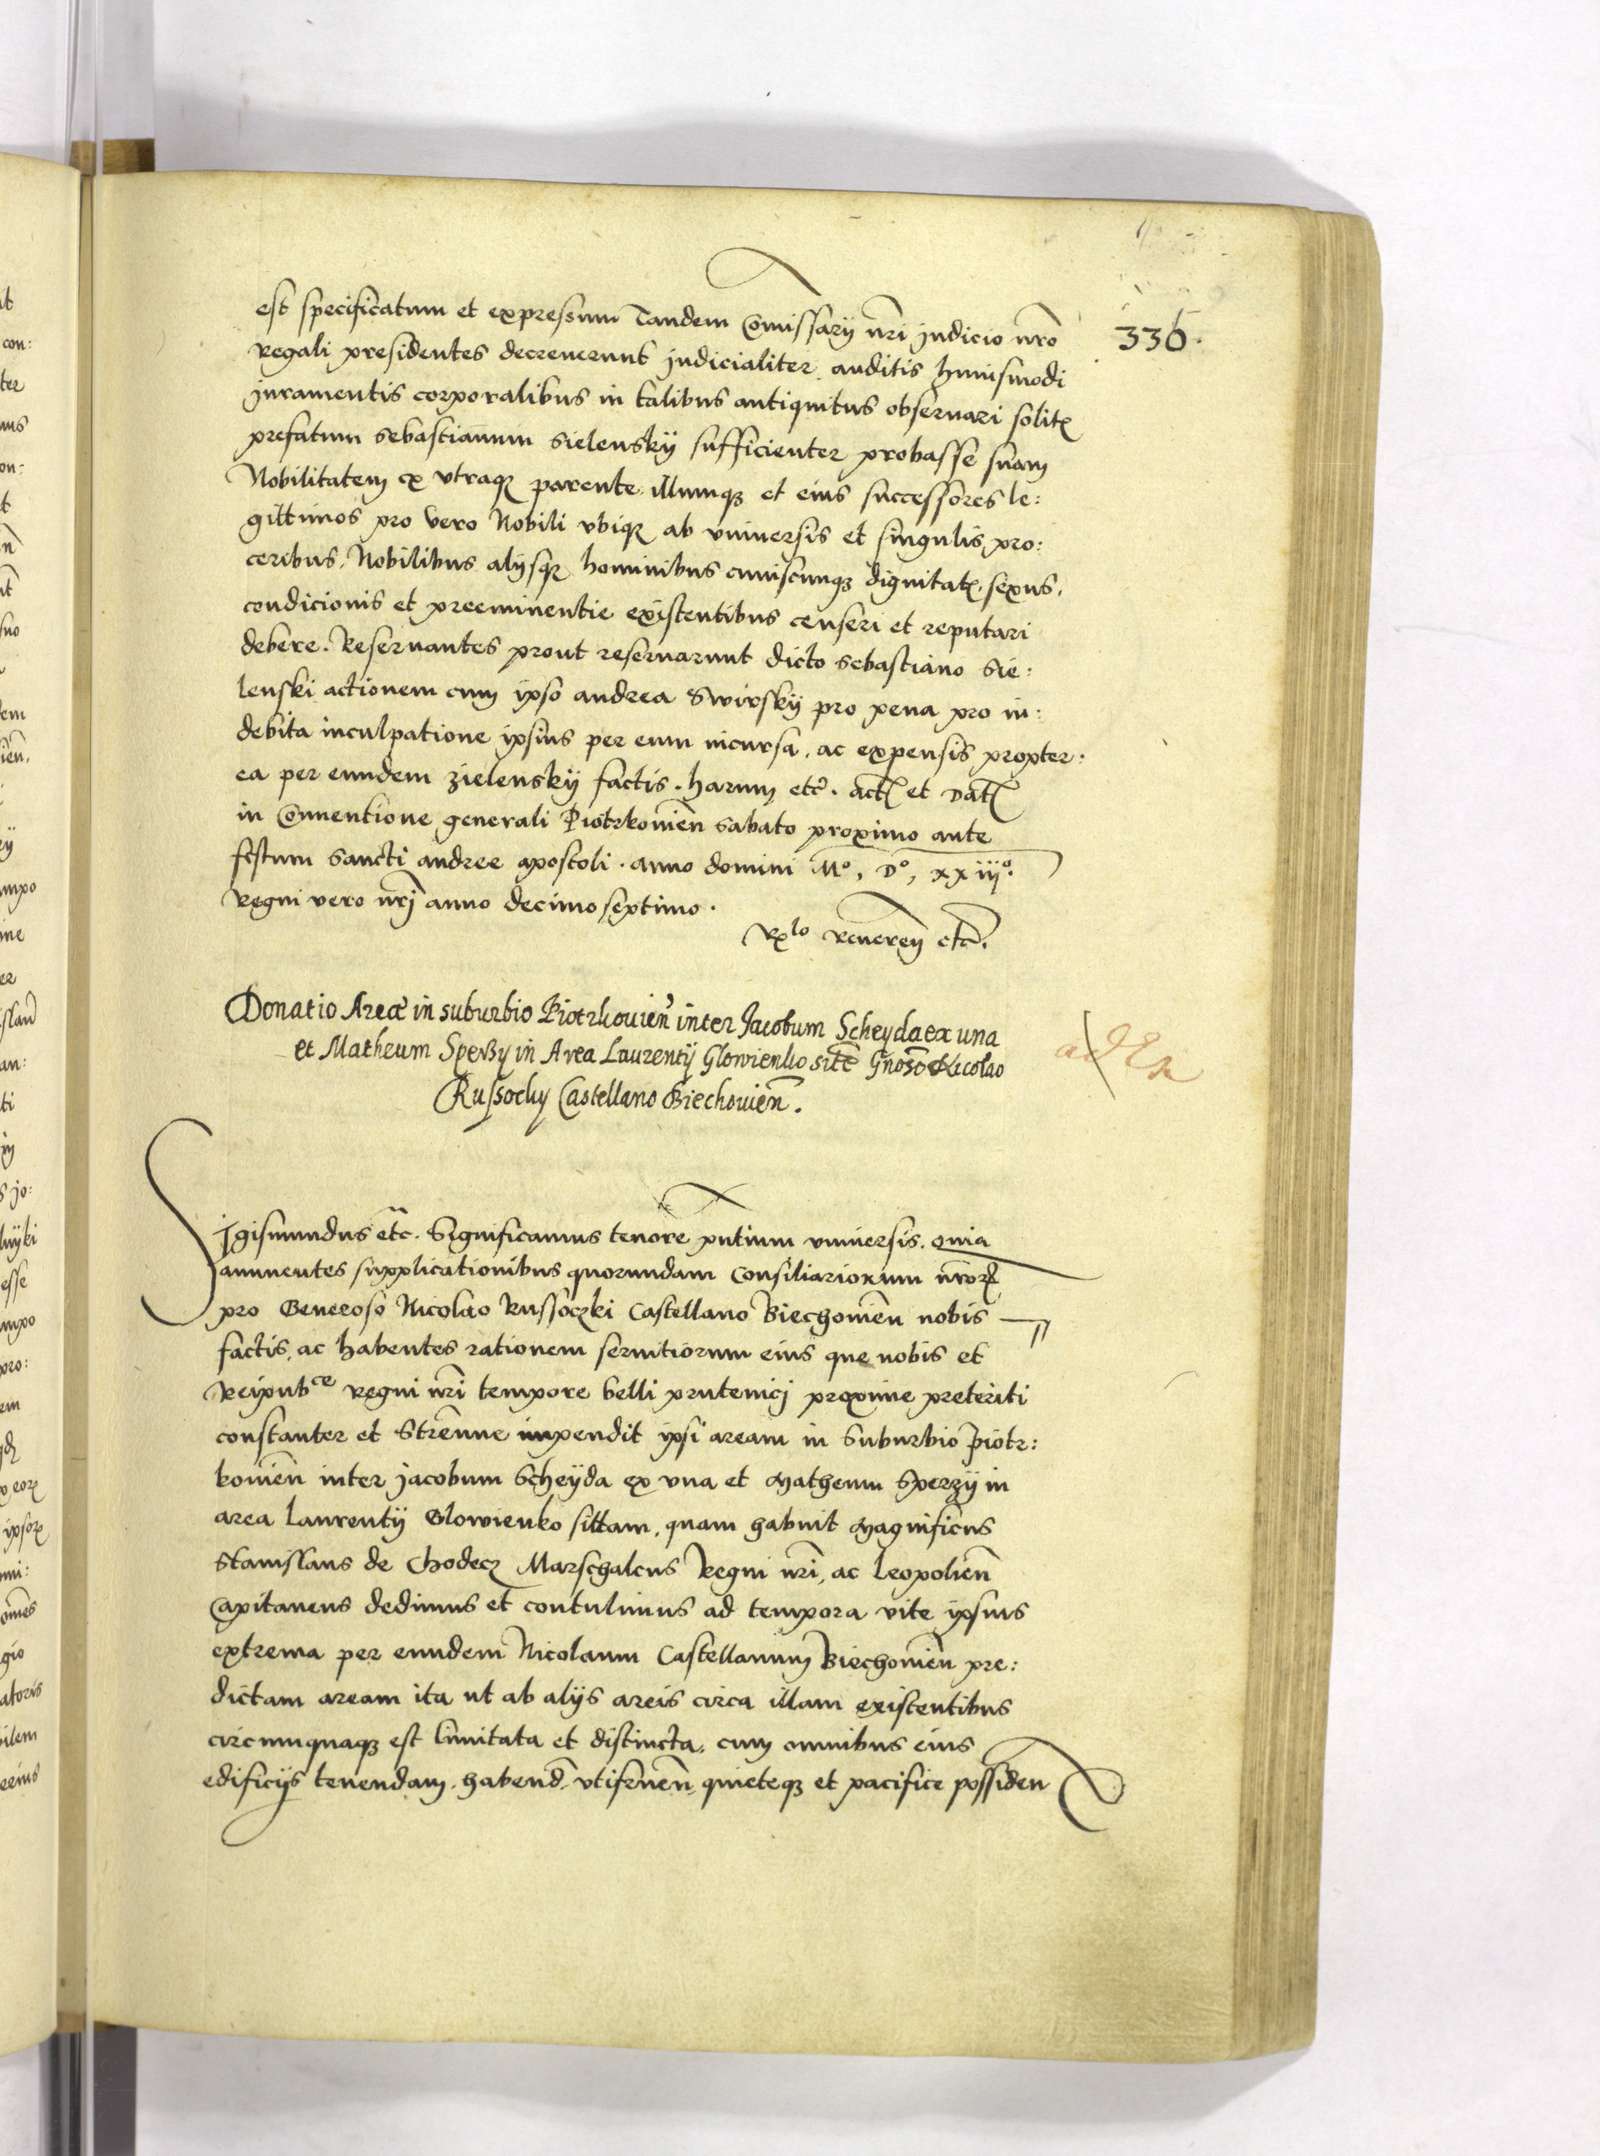 336.
est specificatum et expressum Tandem Comissarij nr̃i judicio nr̃o
regali presidentes decreuerunt judicialiter auditis huiusmodi
juramentis corporalibus in talibus antiquitus obseruari solitꝭ
prefatum sebastianum Sielenskÿ sufficienter probasse suam
Nobilitatem ex vtraqꝫ parente illumqꝫ et eius successores le:
gittimos pro vero Nobili vbiqꝫ ab vniuersis et singulis pro:
ceribus, Nobilibus alijsqꝫ hominibus cuiuscunqꝫ dignitatꝭ, sexus,
condicionis et preeminentie existentibus censeri et reputari
debere. Reseruantes prout reseruarunt dicto Sebastiano Sie:
lenski actionem cum ipso andrea Swirskÿ pro pena pro in:
debita inculpatione ipsius per eum incursa, ac expensis propter:
ea per eundem zielenskÿ factis. harum etc̃. actꝭ et Datꝭ
in Conuentione generali Piotrkouieñ Sabato proximo ante
festum Sancti andree apostoli. anno domini Mᵒ, Dᵒ, xxiijᵒ.
Regni vero nr̃j anno decimoseptimo.
Rx̃ˡᵒ Reueren etc̃.
Donatio Areæ in suburbio Piotrkouieñ inter Jacobum Scheyda ex una
et Matheum Sperzy in Area Laurentij Glowienko site Gnoso Nicolao
Russocky Castellano Biechouieñ.
Sigismundus etc̃. Significamus tenore pñtium vniuersis. Quia
annuentes supplicationibus quorundam Consiliariorum nr̃orꝝ
pro Generoso Nicolao Russoczki Castellano Biechouieñ nobis
factis, ac habentes rationem seruitiorum eius que nobis et
Reipubᶜᵉ regni nr̃i tempore belli prutenicj proxime preteriti
constanter et Strenue impendit ipsi aream in Suburbio Piotr:
kouieñ inter jacobum Scheÿda ex vna et Matheum Sperzÿ in
area Laurentÿ Glowienko sittam, quam habuit Magnificus
Stanislaus de Chodecz Marschalcus Regni nr̃i, ac Leopolieñ
Capitaneus dedimus et contulimus ad tempora vite ipsius
extrema per eundem Nicolaum Castellanum Biechouieñ pre:
dictam aream ita ut ab alijs areis circa illam existentibus
circumquaqꝫ est limitata et distincta, cum omnibus eius
edificijs tenendam, habend̃, vtifrueñ, quieteqꝫ et pacifice possiden